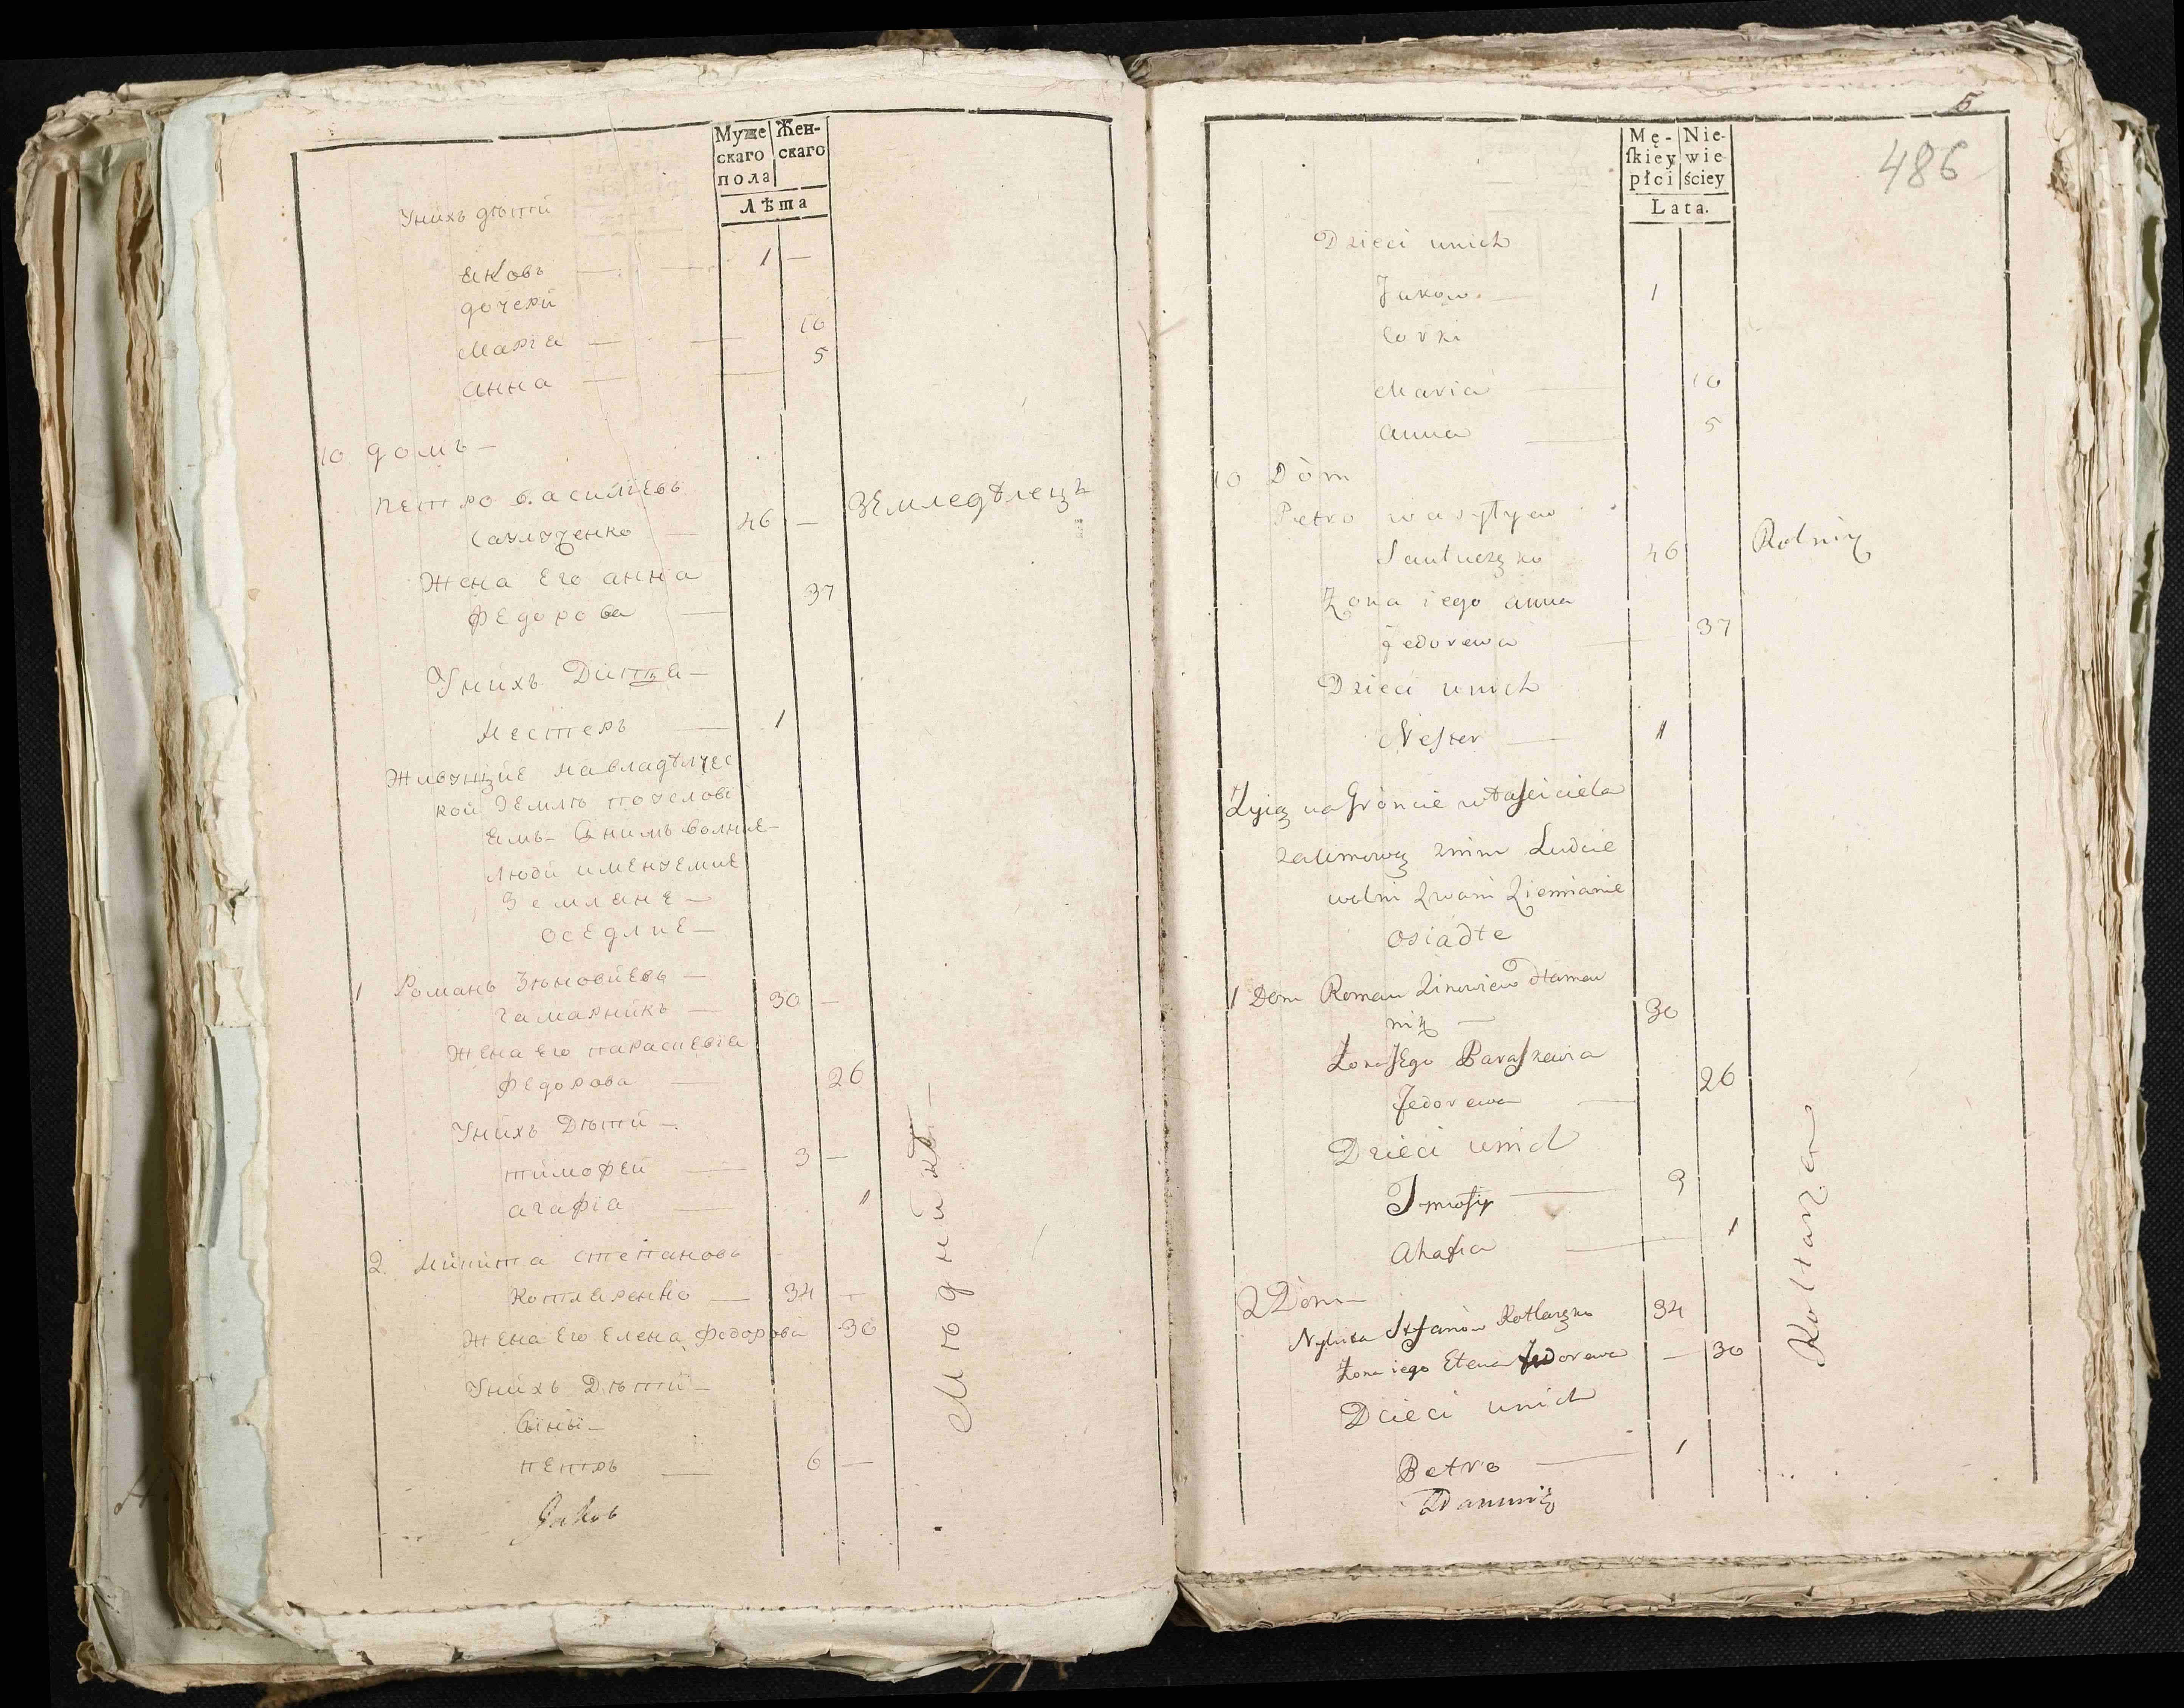 Муже Жен-
скаго скаго
пола
Лѣта
Унихъ дѣтй
Яковъ — — 1 —
дочерй
Марія — — 10
анна — — 5
10 домъ —
петро василïевъ
Саулученко — 46 — Земледѣлецъ
Жена Его анна
Федорова — 37
Унихъ Дитта —
Нестеръ — 1
Живущïе навладѣлчес
кой Землѣ поуслові
Емъ Снимъ волнïе
люди именуемïе
Земляне —
оседлïЕ —
1 Романъ Зѣновïевъ —
гамарнйкъ — 30 —
Жена Его параскевія
Федорова — 26
Унихъ Дѣтй —
тимофей — 3 —
агафіа — 1
2. Нйкита степановъ
Котляренко — 34 —
Жена Его Елена Федорова 30
Унихъ Дѣтй —
Сыны —
петръ — 6 —
Яковъ
Мѣднйкъ —
5
486
Mę- Nie-
ſkiey wie
płci ściey
Lata.
Dzieci unich
Jakow — 1
Corki
Maria — 10
anna — 5
10 Dòm
Petro wasylyew
Sauluczęko 46 Rolnik
Żona iego anna
Fedorewa — 37
Dzieci unich
Nester — 1
Żyią na Gròncie właściciela
zaumową znim Ludzie
wolni zwani Ziemianie
osiadłe
1 Dom Roman Zinowiew Hamar
nik — 30
Żona Jego Paraskewia
Fedorewa — 26
Dzieci unich
Tymofiy — 3
Ahafia — 1
2 Dòm —
Nykita Stefanòw Kotlaręko 34
Żona iego Elena Fedorewa — 30
Dzieci unich
Petro — 1
Kotlarze